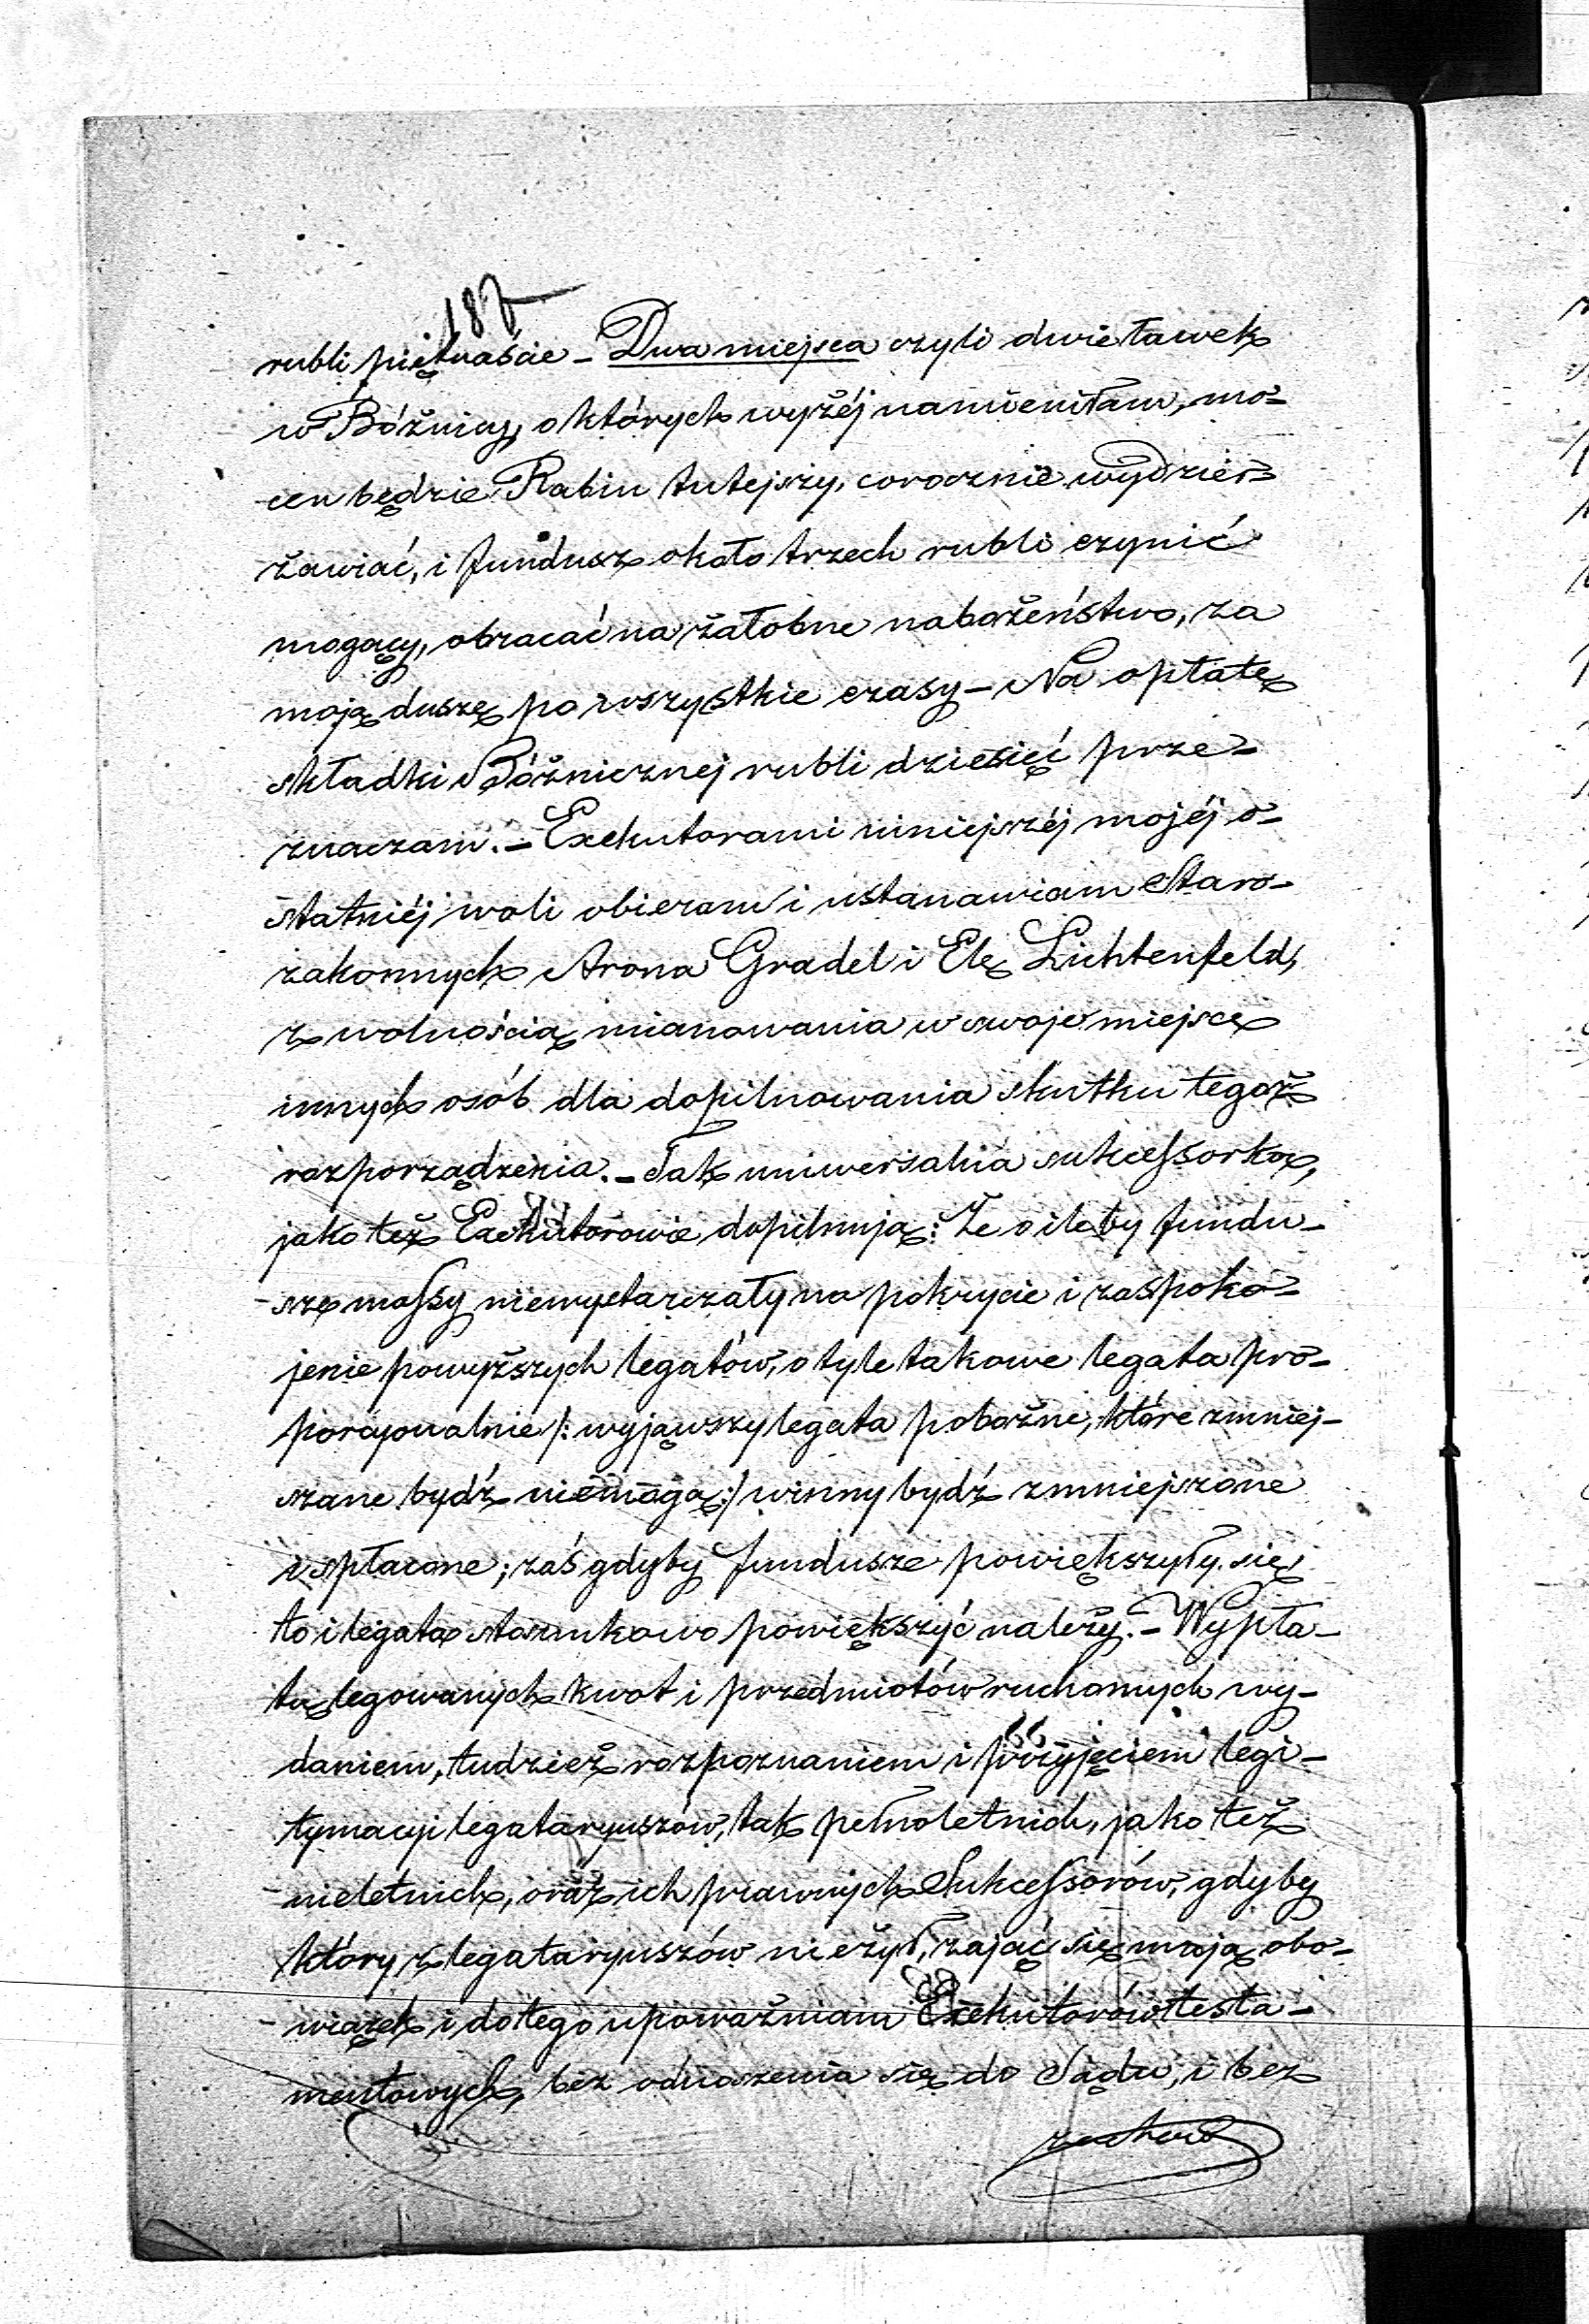 187
rubli piętnaście – Dwa miejsca czyli dwie ławek
w Bóżnicy, o których wyżéj namieniłam, mo-
cen będzie Rabin tutejszy, corocznie wydzier-
żawiać, i fundusz około trzech rubli czynić
mogący, obracać na żałobne nabożeństwo, za
moją duszę po wszystkie czasy – Na opłatę
składki Bóżnicznej rubli dziesięć prze-
znaczam. – Exekutorami niniejszéj mojéj o-
statniéj woli obieram i ustanawiam Staro-
zakonnych Arona Gradel i Elę Lichtenfeld,
z wolnością mianowania w swoje miejsce
innych osób dla dopilnowania skutku tegoż
rozporządzenia. – Tak uniwersalna sukcessorka,
jako też Exekutorowie dopilnują: Że o ileby fundu-
sze massy niewystarczały na pokrycie i zaspoko-
jenie powyższych legatów, o tyle takowe legata pro-
porcyonalnie /: wyjąwszy legata pobożne, które zmniej-
szane bydź niemogą :/ winny bydź zmniejszone
i spłacone; zaś gdyby fundusze powiększyły się
to i legata stosunkowo powiększyć należy. – Wypła-
tą legowanych kwot i przedmiotów ruchomych wy-
daniem, tudzież rozpoznaniem i przyjęciem legi-
tymacyi legataryuszów, tak pełnoletnich, jako też
nieletnich, oraz ich prawnych Sukcessorów, gdyby
który z legataryuszów nieżył, zająć się mają obo-
wiązek i do tego upoważniam Exekutorów testa-
mentowych, bez odnoszenia się do Sądu, i bez